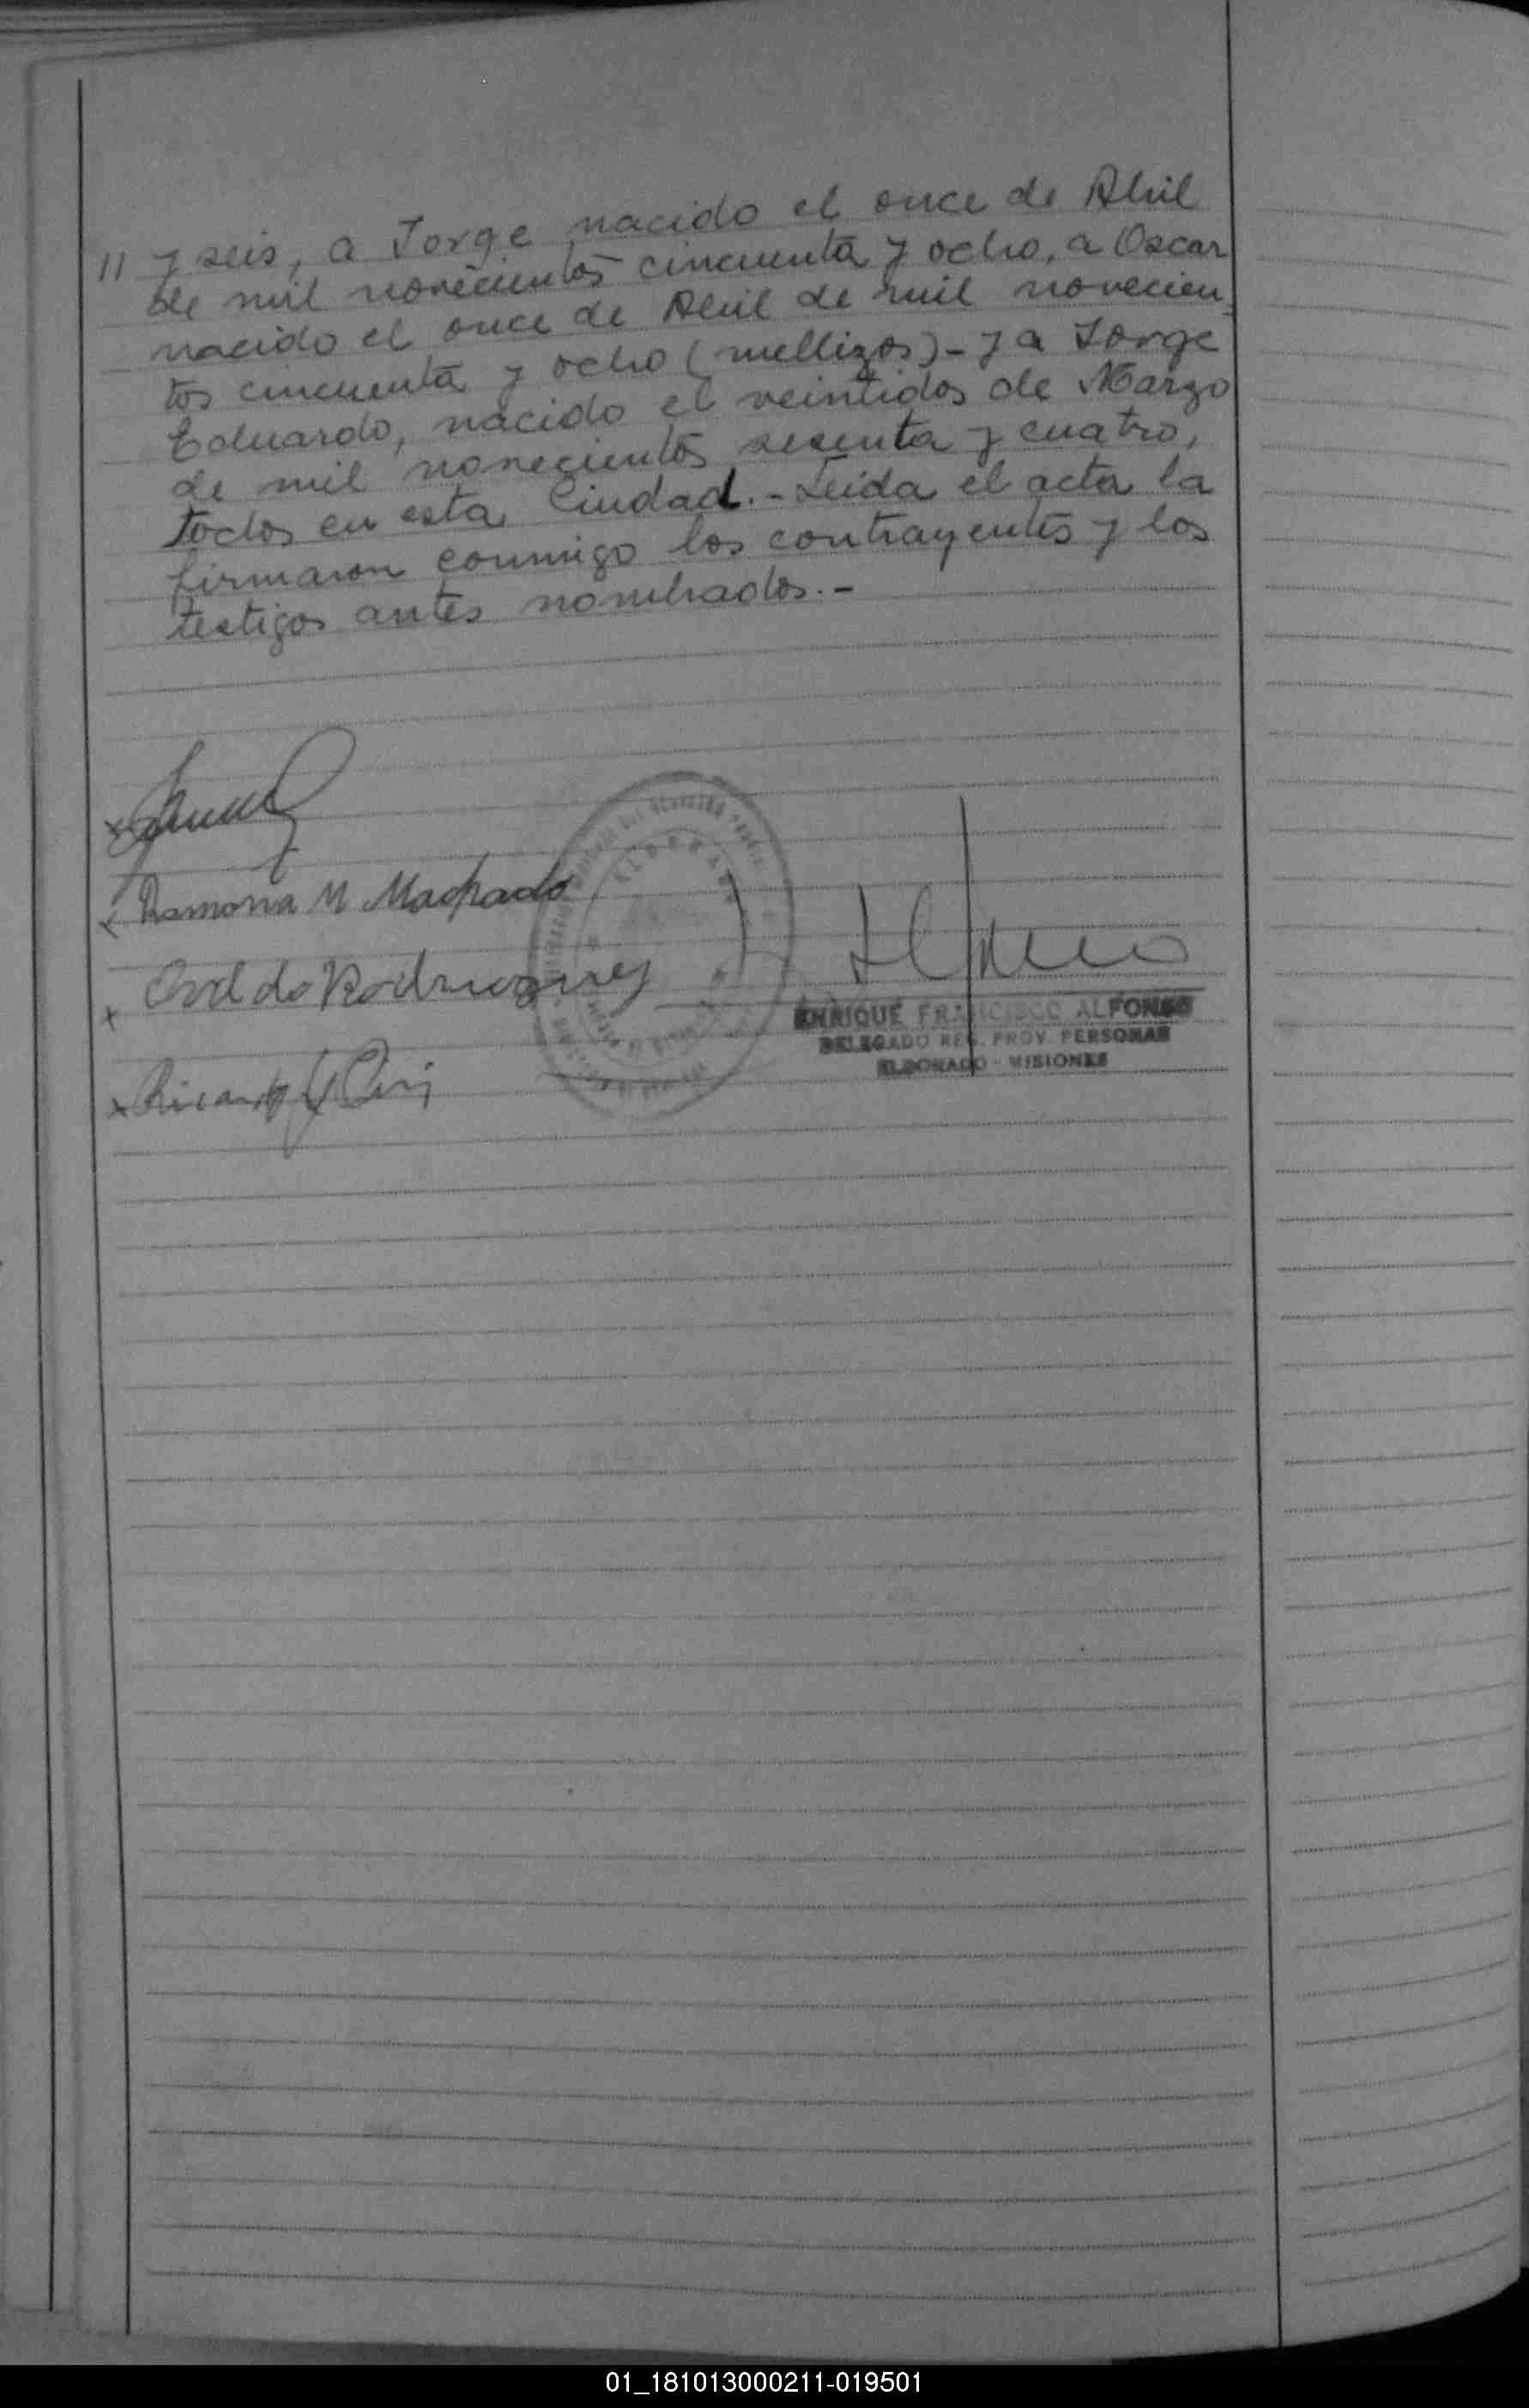 11 y seis, a Jorge nacido el once de Abril
de mil novecientos cincuenta y ocho, a Oscar
nacido el once de Abril de mil novecien
tos cincuenta y ocho (mellizos)- y a Jorge
Eduardo, nacido el veintidos de Marzo
de mil novecientos sesenta y cuatro,
todos en esta Ciudad.- Leida el acta la
firmaron conmigo los contrayentes y los
testigos antes nombrados.-
x
x Ramona M Machado
x Osvaldo Rodriguez
x Ricardo
ENRIQUE FRANCISCO ALFONSO
DELEGADO REG. PROV. PERSONAS
ELDORADO - MISIONES
01_181013000211-019501